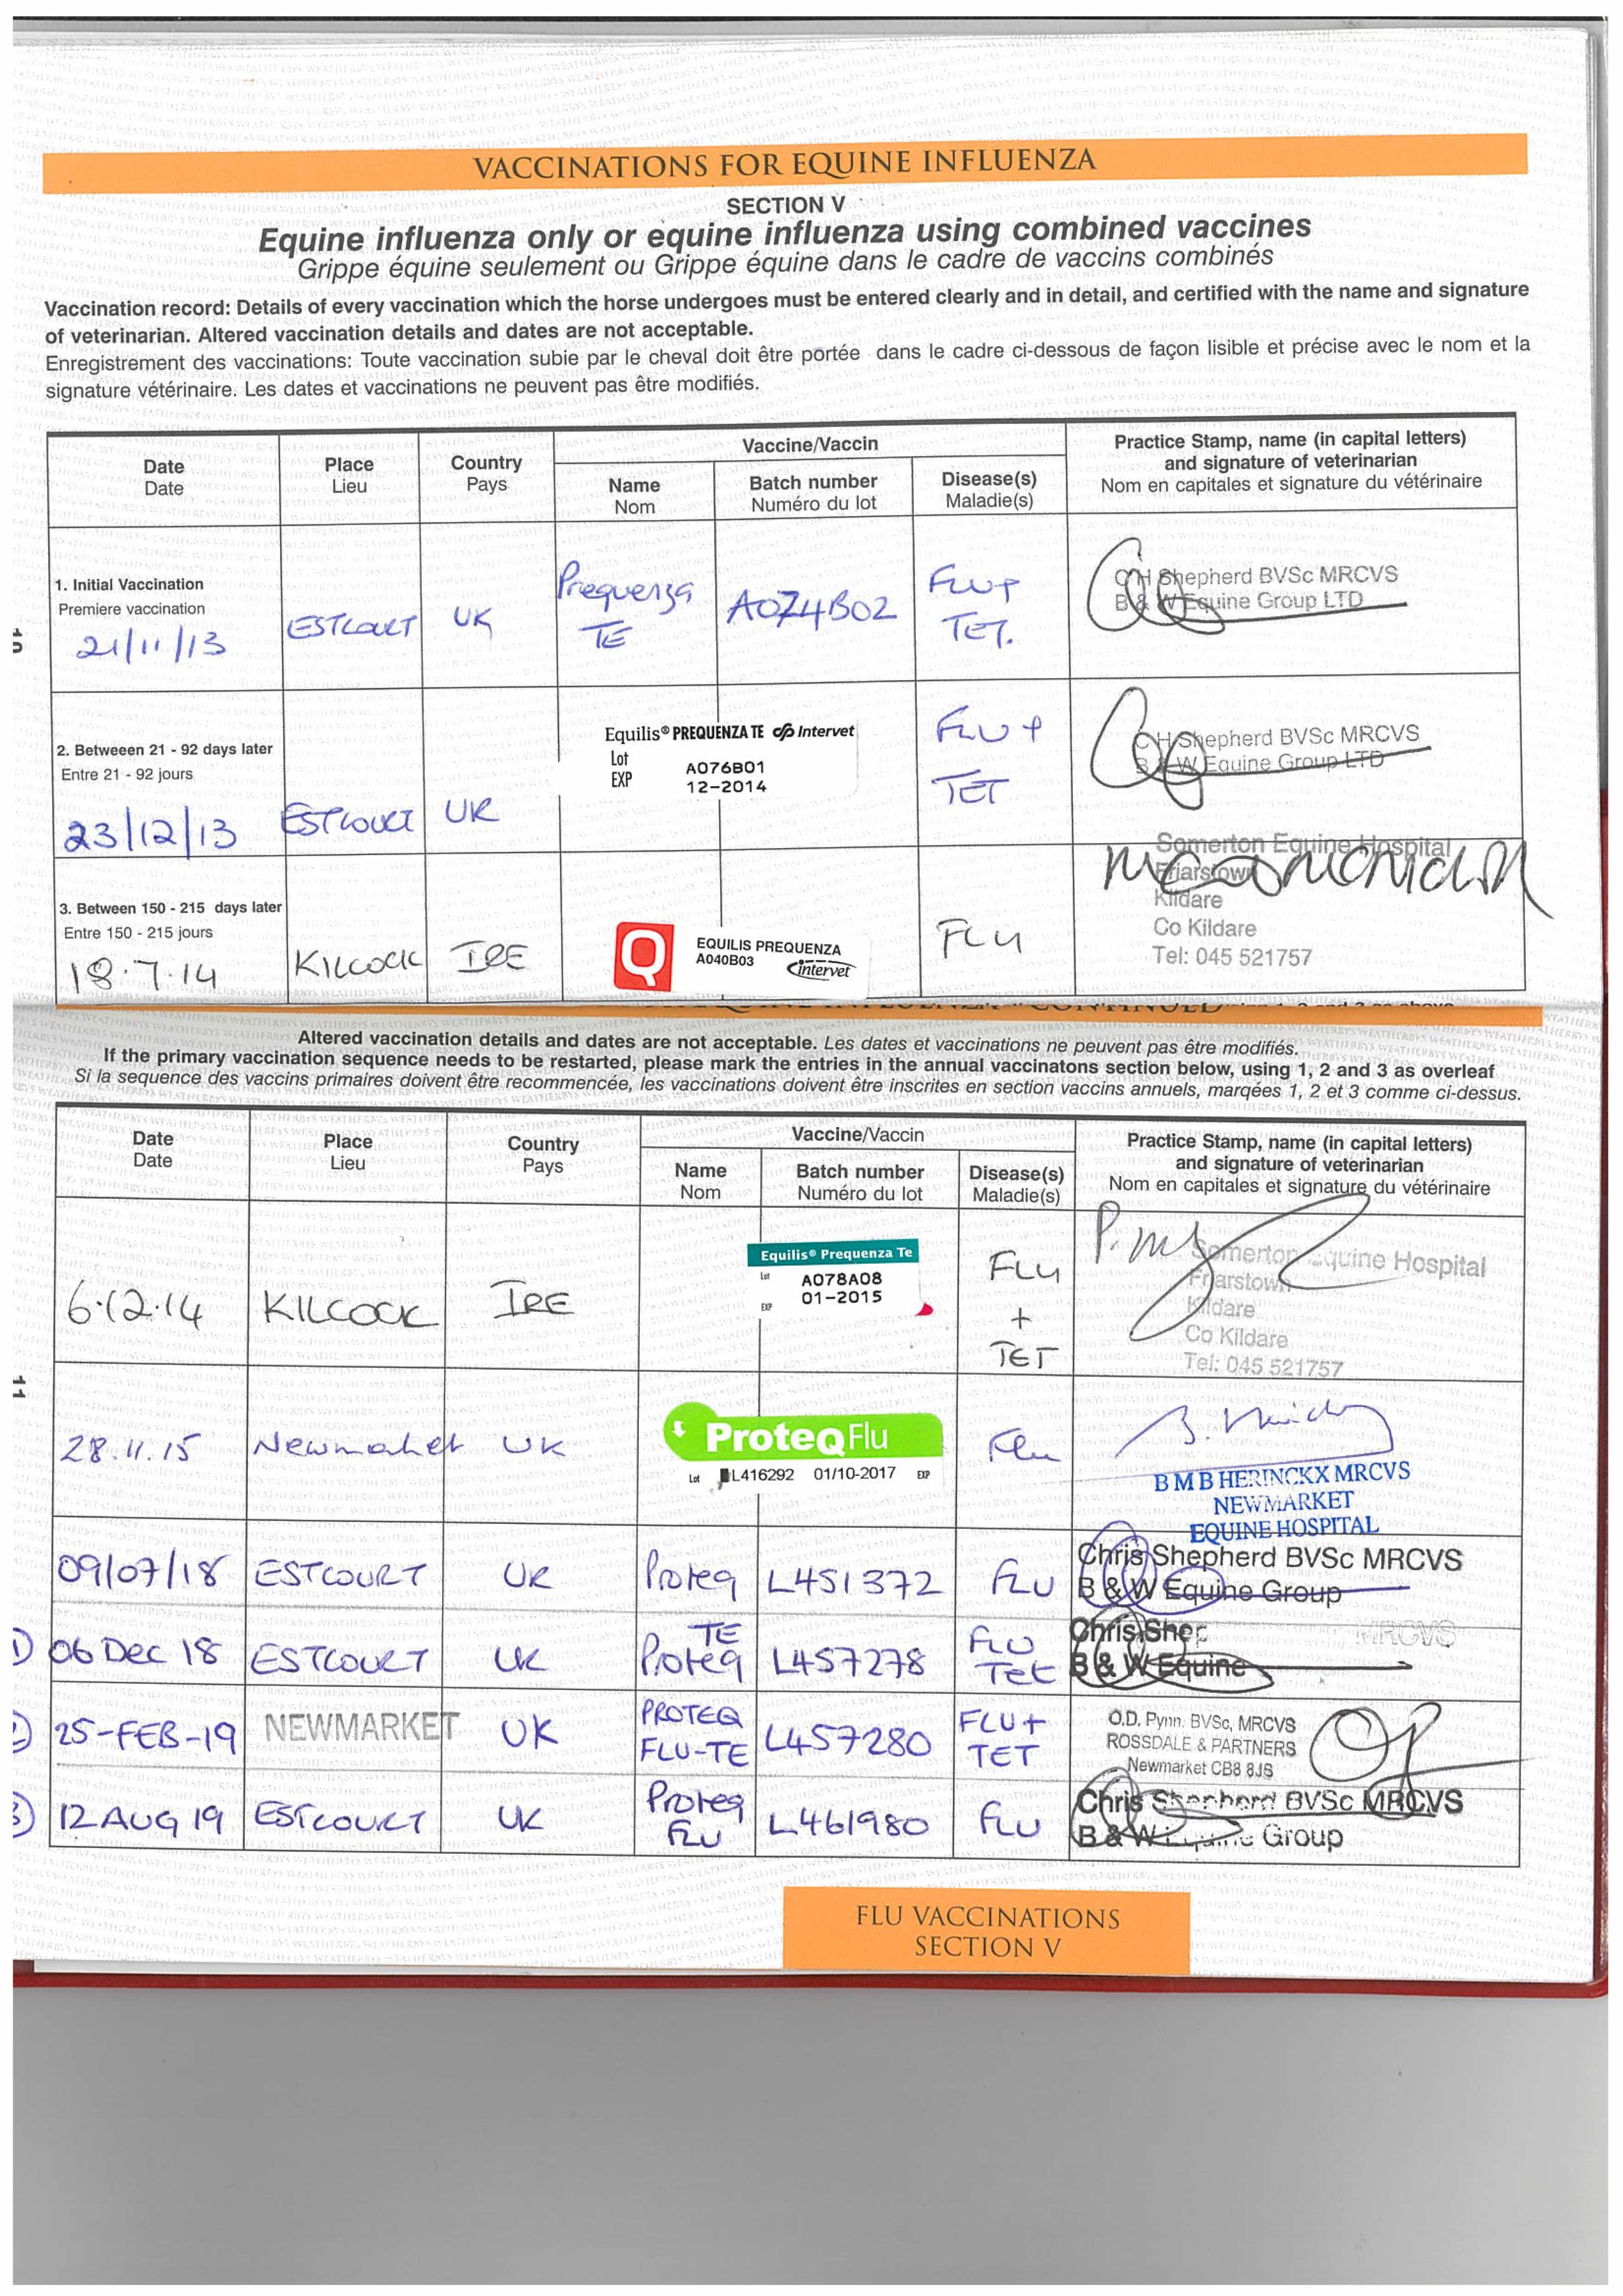 VACCINATIONS FOR EQUINE INFLUENZA
SECTION V
Equine influenza only or equine influenza using combined vaccines
Grippe équine seulement ou Grippe équine dans le cadre de vaccins combinés
Vaccination record: Details of every vaccination which the horse undergoes must be entered clearly and in detail, and certified with the name and signature
of veterinarian. Altered vaccination details and dates are not acceptable.
Enregistrement des vaccinations: Toute vaccination subie par le cheval doit être portée dans le cadre ci-dessous de façon lisible et précise avec le nom et la
signature vétérinaire. Les dates et vaccinations ne peuvent pas être modifiés.
Date
Date
Place
Lieu
Country
Pays
Vaccine/Vaccin
Name
Nom
Batch number
Numéro du lot
Disease(s)
Maladie(s)
Practice Stamp, name (in capital letters)
and signature of veterinarian
Nom en capitales et signature du vétérinaire
10
1. Initial Vaccination
Premiere vaccination
21/11/13
ESTCOURT
UK
Prequenza
TE
A0Z4B02
FLU+
TET.
C H Shepherd BVSc MRCVS
B & W Equine Group LTD
2. Betweeen 21 - 92 days later
Entre 21 - 92 jours
23/12/13
ESTCOURT
UK
Equilis® PREQUENZA TE Intervet
Lot A076B01
EXP 12-2014
FLU +
TET
C H Shepherd BVSc MRCVS
B & W Equine Group LTD
3. Between 150 - 215 days later
Entre 150 - 215 jours
18.7.14
KILCOCK
IRE
Q
EQUILIS PREQUENZA
A040B03
intervet
FLU
Somerton Equine Hospital
Friarstown
Kildare
Co Kildare
Tel: 045 521757
Altered vaccination details and dates are not acceptable. Les dates et vaccinations ne peuvent pas être modifiés.
If the primary vaccination sequence needs to be restarted, please mark the entries in the annual vaccinatons section below, using 1, 2 and 3 as overleaf
Si la sequence des vaccins primaires doivent être recommencée, les vaccinations doivent être inscrites en section vaccins annuels, marqées 1, 2 et 3 comme ci-dessus.
Date
Date
Place
Lieu
Country
Pays
Vaccine/Vaccin
Name
Nom
Batch number
Numéro du lot
Disease(s)
Maladie(s)
Practice Stamp, name (in capital letters)
and signature of veterinarian
Nom en capitales et signature du vétérinaire
6.12.14
KILCOCK
IRE
Equilis® Prequenza Te
Lot A078A08
EXP 01-2015
FLU
+
TET
Somerton Equine Hospital
Friarstown
Kildare
Co Kildare
Tel: 045 521757
11
28.11.15
Newmarket
UK
ProteqFlu
Lot L416292 01/10-2017 EXP
Flu
B M B HERINCKX MRCVS
NEWMARKET
EQUINE HOSPITAL
09/07/18
ESTCOURT
UK
Proteq
L451372
FLU
Chris Shepherd BVSc MRCVS
B & W Equine Group
1) 06 Dec 18
ESTCOURT
UK
TE
Proteq
L457278
FLU
Tet
Chris Shep MRCVS
B & W Equine
2) 25-FEB-19
NEWMARKET
UK
PROTEQ
FLU-TE
L457280
FLU+
TET
O.D. Pynn. BVSc, MRCVS
ROSSDALE & PARTNERS
Newmarket CB8 8JS
3) 12 AUG 19
ESTCOURT
UK
Proteq
FLU
L461980
FLU
Chris Shepherd BVSc MRCVS
B & W Equine Group
FLU VACCINATIONS
SECTION V